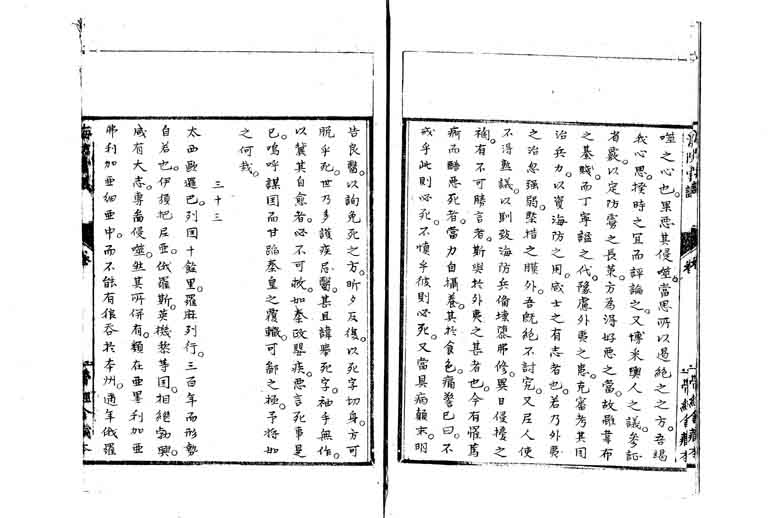 噬之心也。果惡其侵噬。當思所以遏絕之之方。吾竭
我心思。揆時之宜而評論之。又博采輿人之議。參証
者覈。以定防禦之長策。方為得好惡之當。故雖葦布
之甚賤。而丁寧謚之代豫慮外夷之患。充審考其國
治兵力。以資海防之用。咸士之有志者也。若乃外夷
之治忽強弱。緊措之膜外。吾既絕不討究。又尼人使
不得熟議。以馴致海防兵備壞隳弗修。異日侵擾之
禍。有不可勝言者。斯與於外夷之甚者也。今有罹篤
痾而酷惡死者。當力自攝養。其於食色。痛警巳曰。不
戒乎此則必死。不慎乎彼則必死。又當具病顛末。明
告良醫。以詢免死之方。昕夕反復。以死字切身。方可
脫乎死。世乃多護疾忌醫。甚且諱舉死字。袖手無作。
以冀其自愈者。必不可救。如秦政嬰疾。惡言死事是
巳。嗚呼謀国而甘蹈秦皇之覆轍。可鄙之極。予将如
之何哉。
三十三
太西歐邏巴列国十餘里。羅麻列行。三百年而形勢
自若也。伊須把尼亞。俄羅斯。英機黎等国。相継勃興
咸有大志。專嗇侵噬。然其所併有。類在亜墨利加亜
弗利加亜細亜中。而不能有狼吞於本州。逎年俄羅